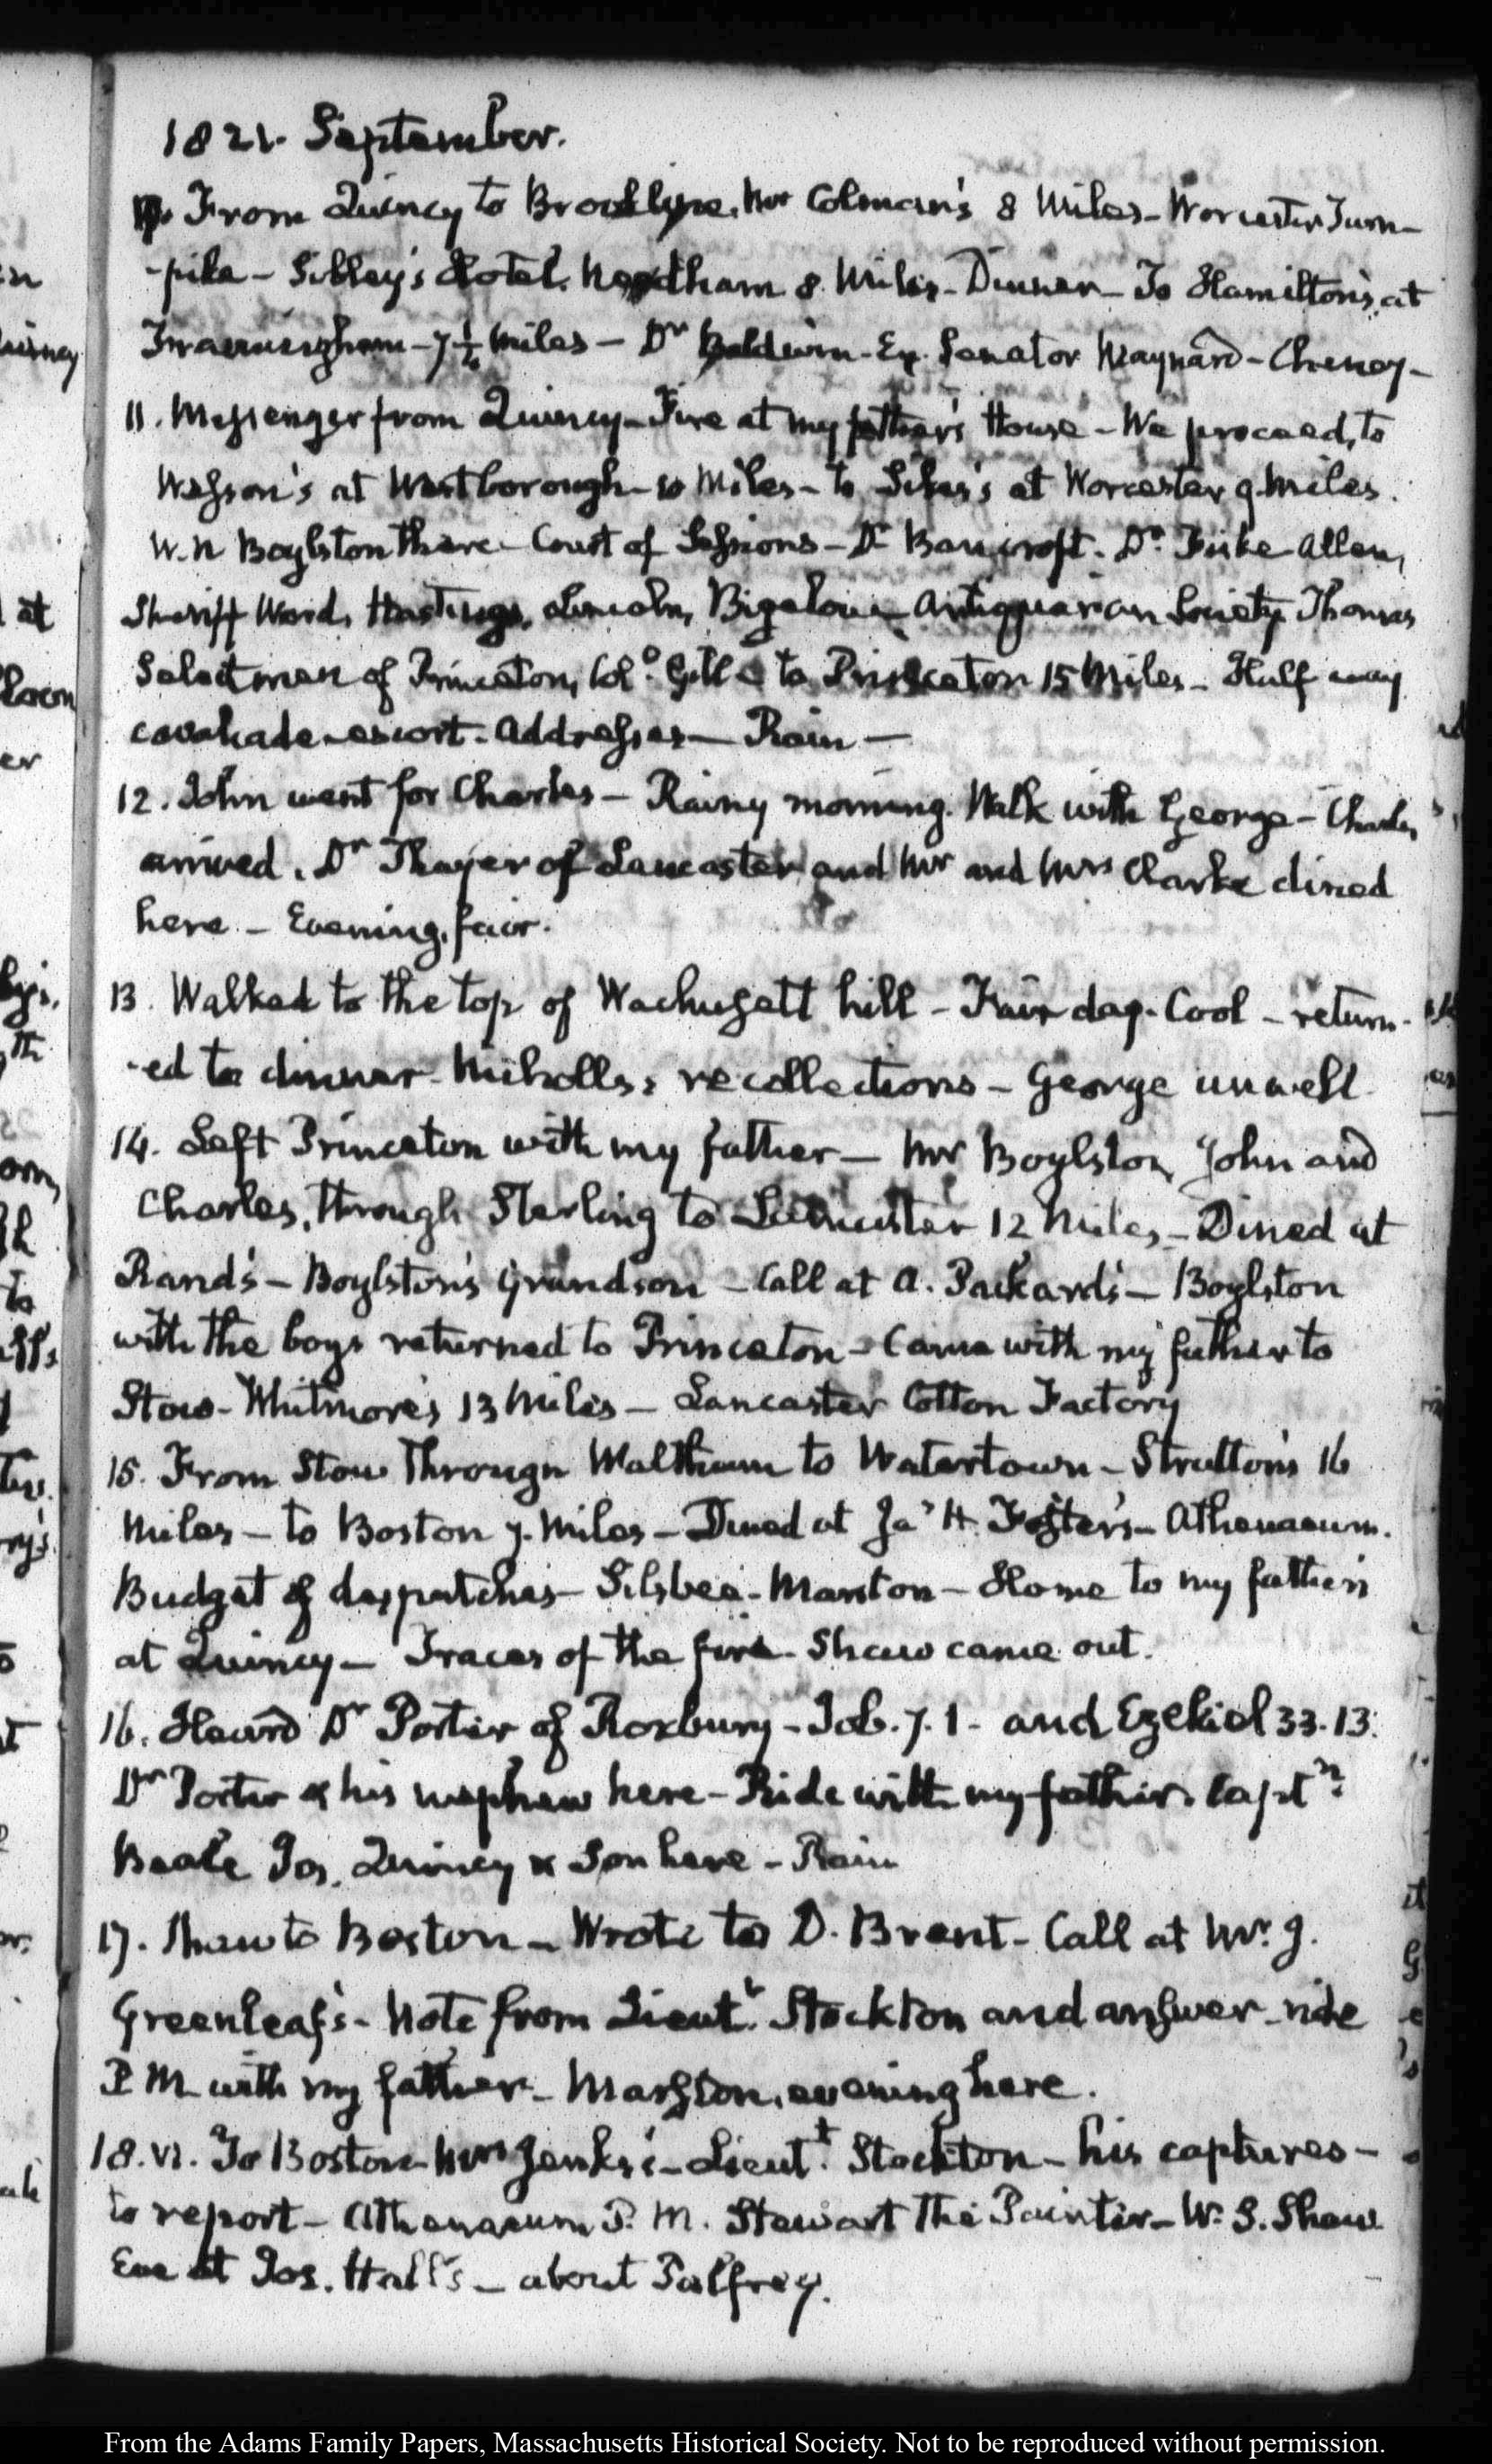 1821. September.
10. From Quincy to Brooklyne. Mr Colman's 8 Miles - Worcester Turn-
-pike - Sibley's Hotel. Needham 8. Miles - Dinner - To Hamilton's at
Framingham - 7½ Miles - Dr Baldwin - Ex. Senator Maynard - Cheney -
11. Messenger from Quincy - Fire at my father's House - We proceed, to
Wesson's at Westborough - 10 Miles - to Sikes's at Worcester 9. Miles.
W. N Boylston there - Court of Sessions - Dr Bancroft. Dr. Fiske Allen,
Sheriff Ward, Hastings, Lincoln, Bigelow - Antiquarian Society Thomas
Selectmen of Princeton, Col.o Gill - to Princeton 15 Miles - Half way
cavalcade - escort - Addresses - Rain -
12. John went for Charles - Rainy morning. Walk with George - Charles
arrived. Dr Thayer of Lancaster and Mr and Mrs Clarke dined
here - Evening, fair.
13. Walked to the top of Wachusett hill - Fair day - Cool - return-
-ed to dinner - recollections - George unwell.
14. Left Princeton with my father - Mr Boylston, John and
Charles, through Sterling to 12 Miles - Dined at
Rand's - Boylston's Grandson - Call at A. Packard's - Boylston
with the boys returned to Princeton - Came with my father to
Stow - Whitmore's 13 Miles - Lancaster Cotton Factory
15. From Stow through Waltham to Watertown - Stratton's 16
Miles - to Boston 7. Miles - Dined at Ja.s H. Foster's - Athenaeum.
Budget of despatches - Silsbee - Marston - Home to my father's
at Quincy - Traces of the fire - Shaw came out.
16. Heard Dr Porter of Roxbury - Job. 7. 1 - and Ezekiel 33. 13.
Dr Porter & his nephew here - Ride with my father. Capt.n
Beale Jos. Quincy & Son here - Rain
17. Shaw to Boston - Wrote to D. Brent - Call at Mr. J.
Greenleaf's - Note from Lieut.t Stockton and answer - ride
P M with my father - Marston, evening here.
18. VI. To Boston - Mrs Jenks's - Lieut.t Stockton - his captures -
to report - Athenaeum P. M. Stewart the Painter - W. S. Shaw
Eve at Jos. Hall's - about Palfrey.
From the Adams Family Papers, Massachusetts Historical Society. Not to be reproduced without permission.